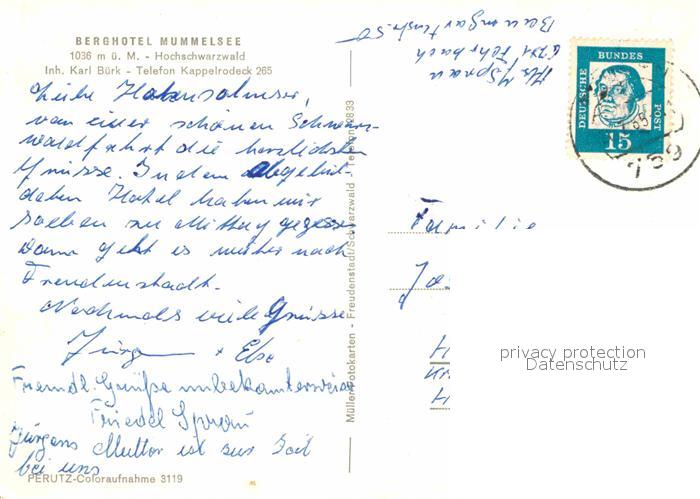 BERGHOTEL MUMMELSEE
1036 m ü. M. - Hochschwarzwald
Inh. Karl Bürk - Telefon Kappelrodeck 265
Liebe
von einer schönen Schwarz-
waldfahrt die herzlichsten
Grüsse. In dem abgebil-
deten Hotel haben wir
soeben zu Mittag gegessen
Dann geht es weiter nach
Freudenstadt.
Nochmals viele Grüsse
Jürgen + Else
Freundl. Grüße unbekannterweise
Friedel
Jürgens Mutter ist zur Zeit
bei uns
PERUTZ-Coloraufnahme 3119
Müller-Fotokarten - Freudenstadt/Schwarzwald - Telefon
DEUTSCHE BUNDES POST
15
Familie
privacy protection
Datenschutz